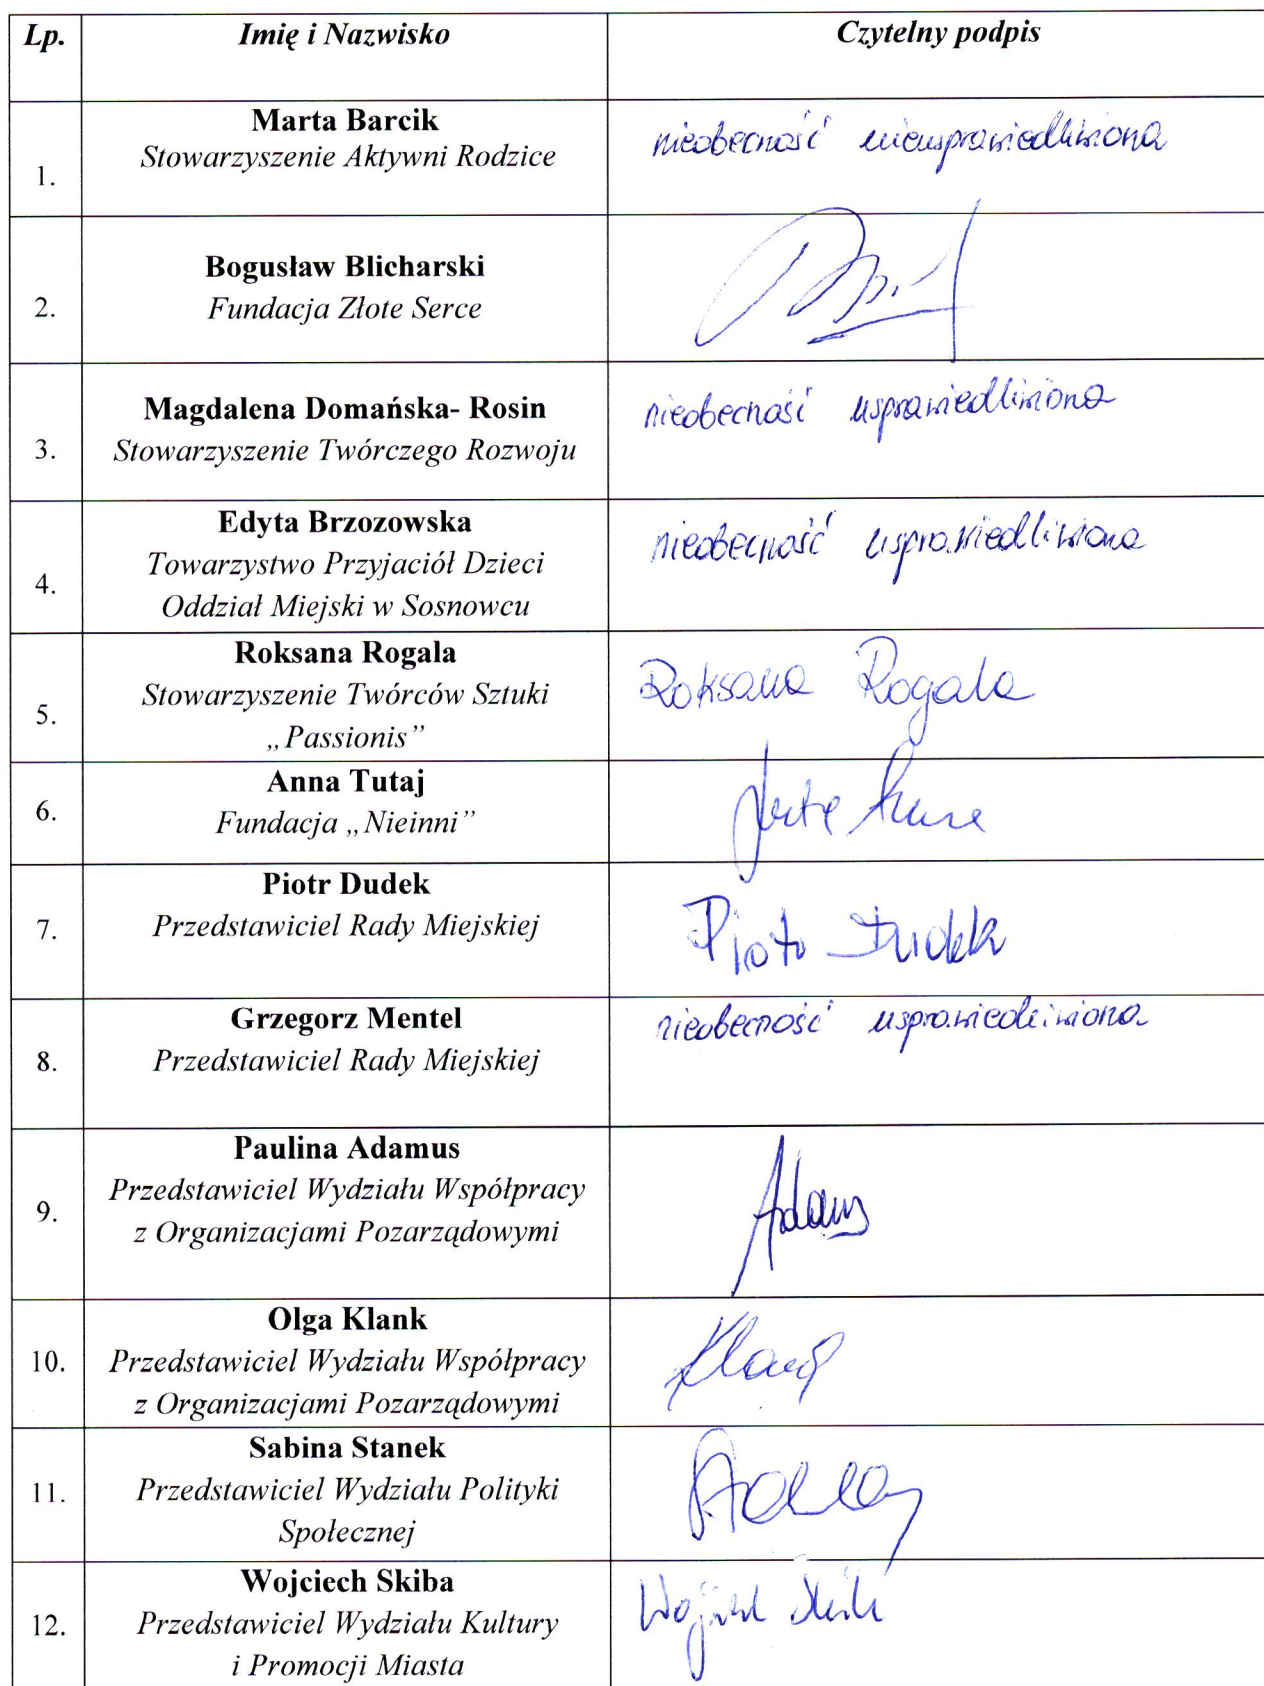 Lp. Imię i Nazwisko Czytelny podpis
Marta Barcik
Stowarzyszenie Aktywni Rodzice
1.
nieobecność nieusprawiedliwiona
Bogusław Blicharski
2. Fundacja Złote Serce
Magdalena Domańska- Rosin
3. Stowarzyszenie Twórczego Rozwoju
nieobecność usprawiedliwiona
Edyta Brzozowska
Towarzystwo Przyjaciół Dzieci
4.
Oddział Miejski w Sosnowcu
nieobecność usprawiedliwiona
Roksana Rogala
Stowarzyszenie Twórców Sztuki
5.
„Passionis”
Roksana Rogala
Anna Tutaj
6. Fundacja „Nieinni”
Piotr Dudek
7. Przedstawiciel Rady Miejskiej
Piotr Dudek
Grzegorz Mentel
8. Przedstawiciel Rady Miejskiej
nieobecność usprawiedliwiona
Paulina Adamus
Przedstawiciel Wydziału Współpracy
9.
z Organizacjami Pozarządowymi
Olga Klank
10. Przedstawiciel Wydziału Współpracy
z Organizacjami Pozarządowymi
Sabina Stanek
11. Przedstawiciel Wydziału Polityki
Społecznej
Wojciech Skiba
12. Przedstawiciel Wydziału Kultury
i Promocji Miasta